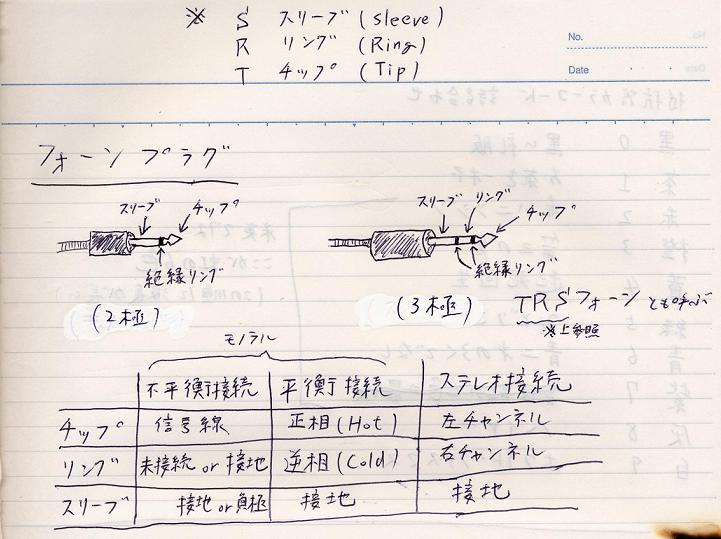 ※ S スリーブ(sleeve)
R リング(Ring)
T チップ(Tip)
No.
Date
フォーンプラグ
スリーブ チップ
絶縁リング
(2極)
スリーブ リング チップ
絶縁リング
(3極)
TRSフォーンとも呼ぶ
※上参照
モノラル
不平衡接続 平衡接続 ステレオ接続
チップ 信号線 正相(Hot) 左チャンネル
リング 未接続or接地 逆相(Cold) 右チャンネル
スリーブ 接地or負極 接地 接地